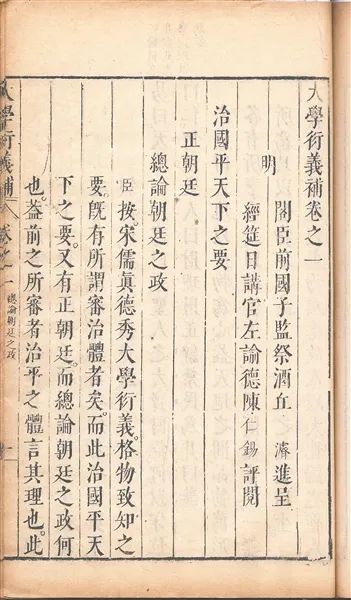 大學衍義補卷之一
閣臣前國子監祭酒丘 濬 進呈
明
經筵日講官左諭德陳仁錫評閱
治國平天下之要
正朝廷
總論朝廷之政
臣按宋儒真德秀大學衍義格物致知之
要既有所謂審治體者矣而此治國平天
下之要又有正朝廷而總論朝廷之政何
也蓋前之所審者治平之體言其理也此
大學衍義補 卷之一 總論朝廷之政 一